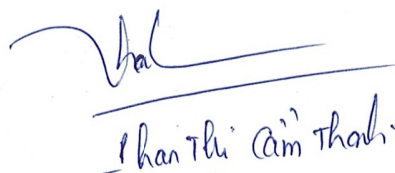 Phan Thi Cẩm Thanh